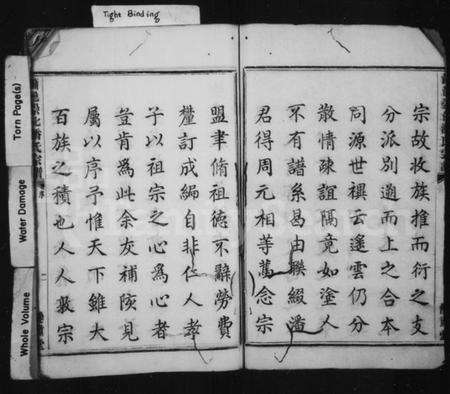 Tight Binding
Torn Page(s)
Water Damage
Whole Volume
宗故收族推而衍之支
分派別遡而上之合本
同源世禩云遙雲仍分
散情疎誼隔竟如塗人
不有譜系曷由聯綴潘
君得周元相等萬念宗
盟聿脩祖德不辭勞費
釐訂成編自非仁人孝
子以祖宗之心為心者
豈肯為此余友補陔見
屬以序予惟天下雖大
百族之積也人人敦宗
序
二